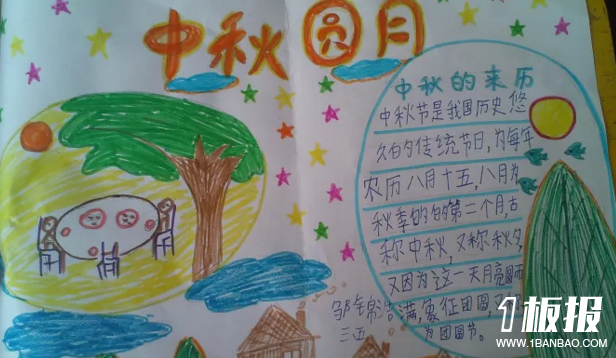 中秋圆月
中秋的来历
中秋节是我国历史悠
久的的传统节日,为每年
农历八月十五,八月为
秋季的的第二个月,古
称中秋,又称秋夕,
又因为这一天月亮圆而
满,象征团圆又
为团圆节。
邹锦洁
三五
1板报
WWW.1BANBAO.COM